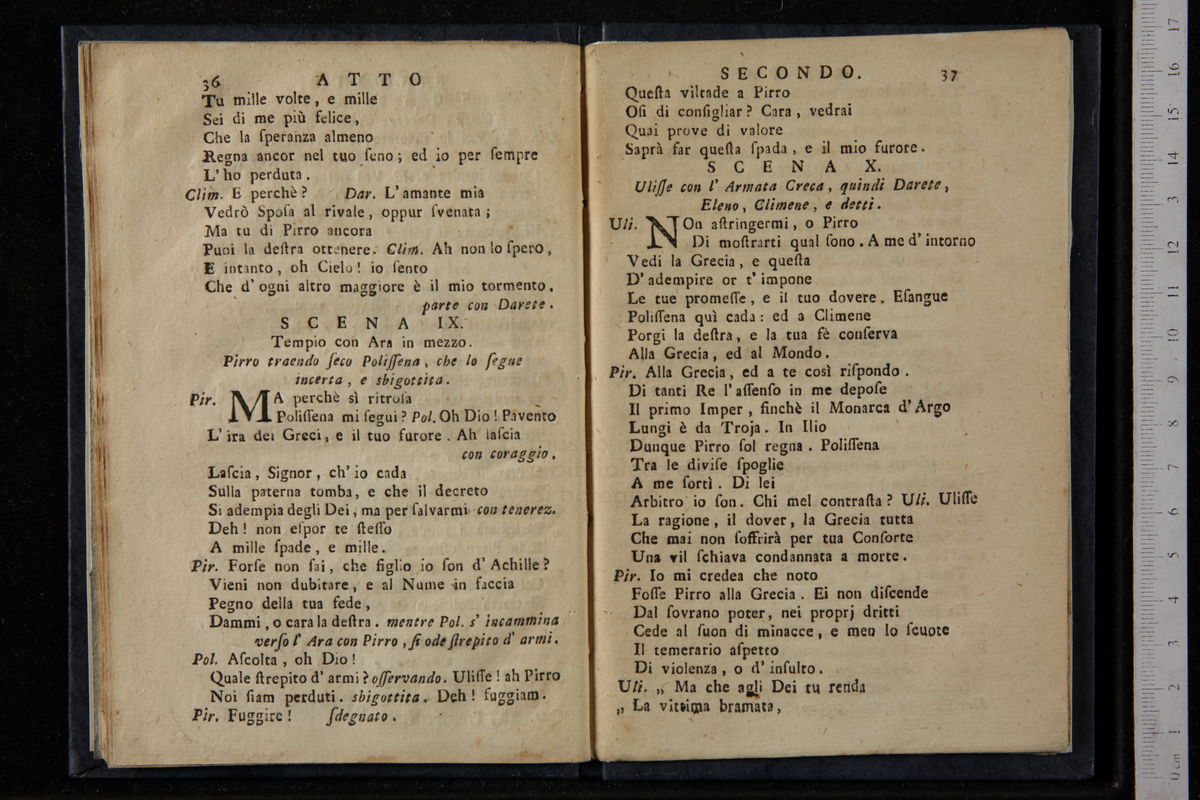 36 ATTO
Tu mille volte, e mille
Sei di me più felice,
Che la ſperanza almeno
Regna ancor nel tuo ſeno; ed io per ſempre
L' ho perduta.
Clim. E perchè? Dar. L' amante mia
Vedrò Spoſa al rivale, oppur ſvenata;
Ma tu di Pirro ancora
Puoi la deſtra ottenere. Clim. Ah non lo ſpero,
E intanto, oh Cielo! io ſento
Che d' ogni altro maggiore è il mio tormento.
parte con Darete.
SCENA IX.
Tempio con Ara in mezzo.
Pirro traendo ſeco Poliſſena, che lo ſegue
incerta, e sbigottita.
Pir. MA perchè sì ritroſa
Poliſſena mi ſegui? Pol. Oh Dio! Pavento
L' ira dei Greci, e il tuo furore. Ah laſcia
con coraggio.
Laſcia, Signor, ch' io cada
Sulla paterna tomba, e che il decreto
Si adempia degli Dei, ma per ſalvarmi con tenerez.
Deh! non eſpor te ſteſſo
A mille ſpade, e mille.
Pir. Forſe non ſai, che figlio io ſon d' Achille?
Vieni non dubitare, e al Nume in faccia
Pegno della tua fede,
Dammi, o cara la deſtra. mentre Pol. s' incammina
verſo l' Ara con Pirro, ſi ode ſtrepito d' armi.
Pol. Aſcolta, oh Dio!
Quale ſtrepito d' armi? oſſervando. Uliſſe! ah Pirro
Noi ſiam perduti. sbigottita. Deh! fuggiam.
Pir. Fuggire! ſdegnato.
SECONDO. 37
Queſta viltade a Pirro
Oſi di conſigliar? Cara, vedrai
Quai prove di valore
Saprà far queſta ſpada, e il mio furore.
SCENA X.
Uliſſe con l' Armata Greca, quindi Darete,
Eleno, Climene, e detti.
Uli. NOn aſtringermi, o Pirro
Di moſtrarti qual ſono. A me d' intorno
Vedi la Grecia, e queſta
D' adempire or t' impone
Le tue promeſſe, e il tuo dovere. Eſangue
Poliſſena quì cada: ed a Climene
Porgi la deſtra, e la tua fè conſerva
Alla Grecia, ed al Mondo.
Pir. Alla Grecia, ed a te così riſpondo.
Di tanti Re l' aſſenſo in me depoſe
Il primo Imper, finchè il Monarca d' Argo
Lungi è da Troja. In Ilio
Dunque Pirro ſol regna. Poliſſena
Tra le diviſe ſpoglie
A me ſortì. Di lei
Arbitro io ſon. Chi mel contraſta? Uli. Uliſſe
La ragione, il dover, la Grecia tutta
Che mai non ſoffrirà per tua Conſorte
Una vil ſchiava condannata a morte.
Pir. Io mi credea che noto
Foſſe Pirro alla Grecia. Ei non diſcende
Dal ſovrano poter, nei proprj dritti
Cede al ſuon di minacce, e men lo ſcuote
Il temerario aſpetto
Di violenza, o d' inſulto.
Uli. „ Ma che agli Dei tu renda
„ La vittima bramata,
0 cm 1 2 3 4 5 6 7 8 9 10 11 12 13 14 15 16 17